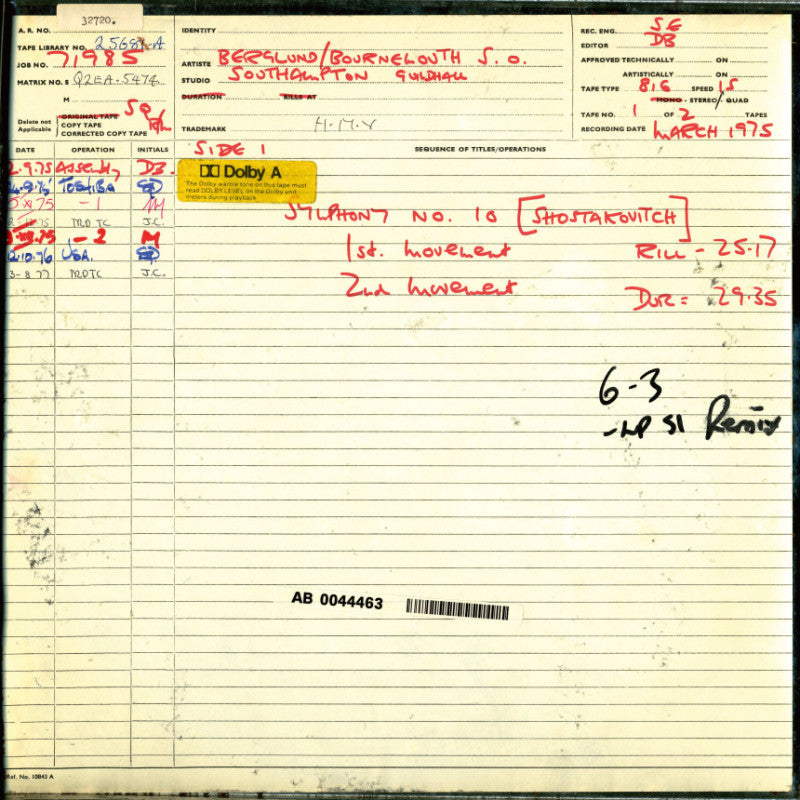 32720.
A. R. NO.
TAPE LIBRARY NO. 25681-A
JOB NO. 71985
MATRIX NO. S Q2EA-5474
M
Delete not Applicable
ORIGINAL TAPE
COPY TAPE
CORRECTED COPY TAPE
IDENTITY
ARTISTE BERGLUND/BOURNEMOUTH S.O.
STUDIO SOUTHAMPTON GUILDHALL
DURATION RILLS AT
TRADEMARK H.M.V
REC. ENG. SE
EDITOR DB
APPROVED TECHNICALLY ON
ARTISTICALLY ON
TAPE TYPE 816 SPEED 15
MONO - STEREO / QUAD
TAPE NO. 1 OF 2 TAPES
RECORDING DATE MARCH 1975
DATE OPERATION INITIALS
SEQUENCE OF TITLES/OPERATIONS
SIDE 1
Dolby A
The Dolby warble tone on this tape must
read DOLBY LEVEL on the Dolby unit
meters during playback
2.9.75 Assembly DB.
TOSHIBA
-1
TRD TC J.C.
-2 M
USA.
3-8 77 TRDTC J.C.
SYMPHONY NO. 10 [SHOSTAKOVITCH]
1st. Movement RILL - 25.17
2nd Movement DUR = 29.35
6-3
-LP S1 Remix
AB 0044463
Ref. No. 10843 A